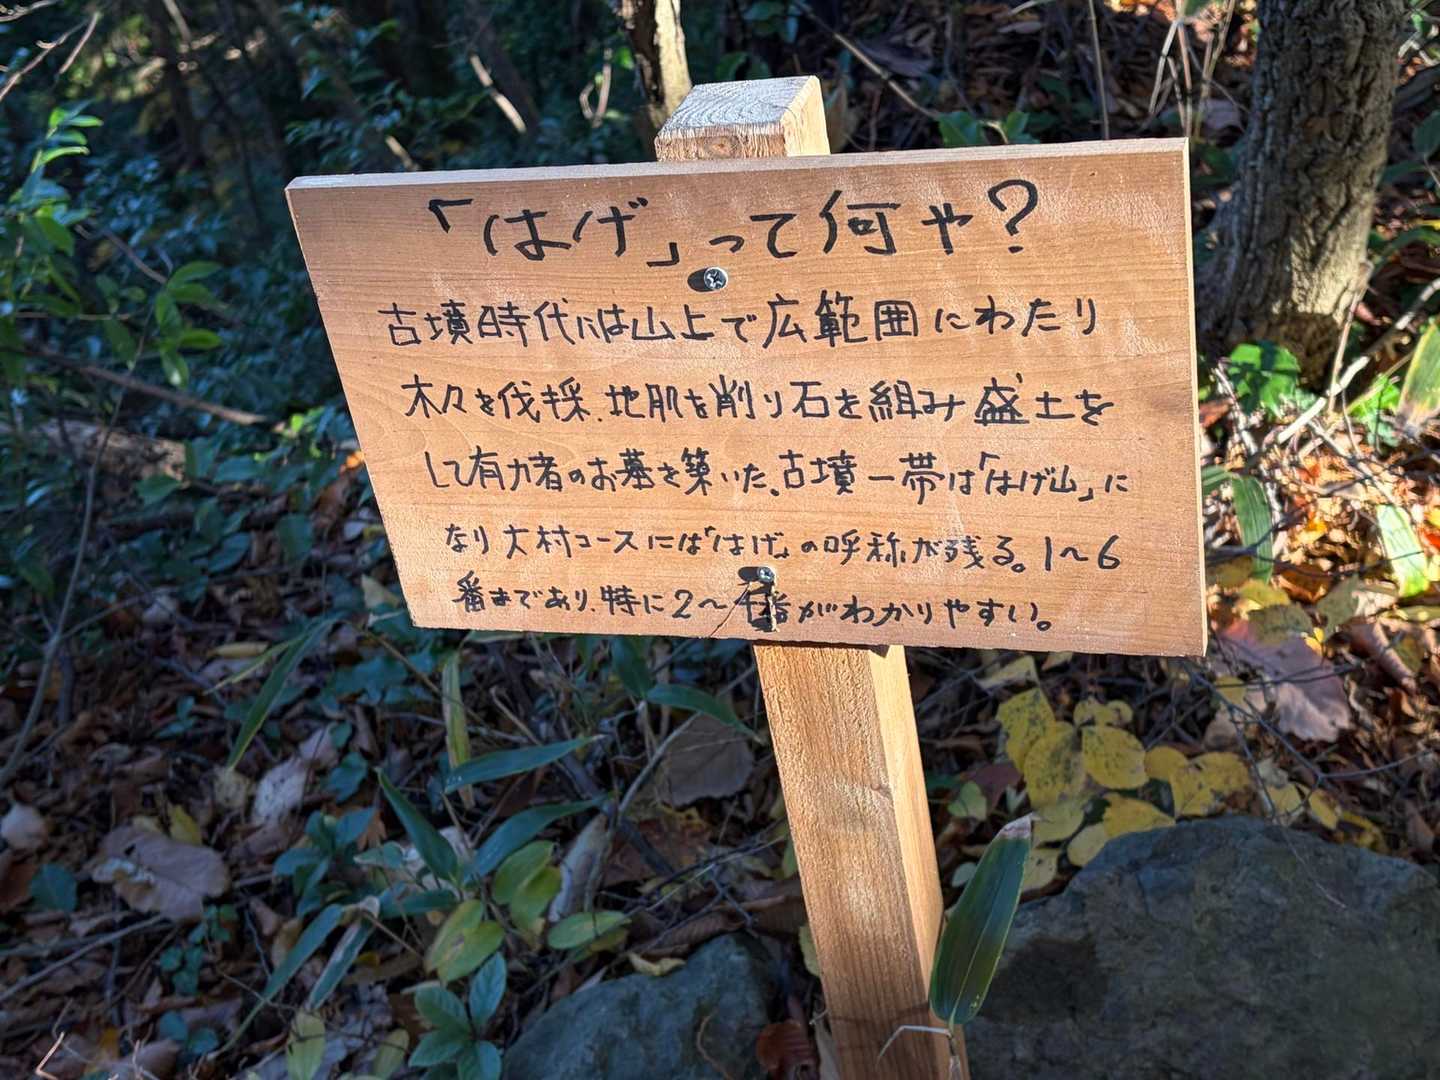 「はげ」って何や?
古墳時代には山上で広範囲にわたり
木々を伐採、地肌を削り石を組み盛土を
して有力者のお墓を築いた。古墳一帯は「はげ山」に
なり大村コースには「はげ」の呼称が残る。1〜6
番まであり、特に2〜 がわかりやすい。